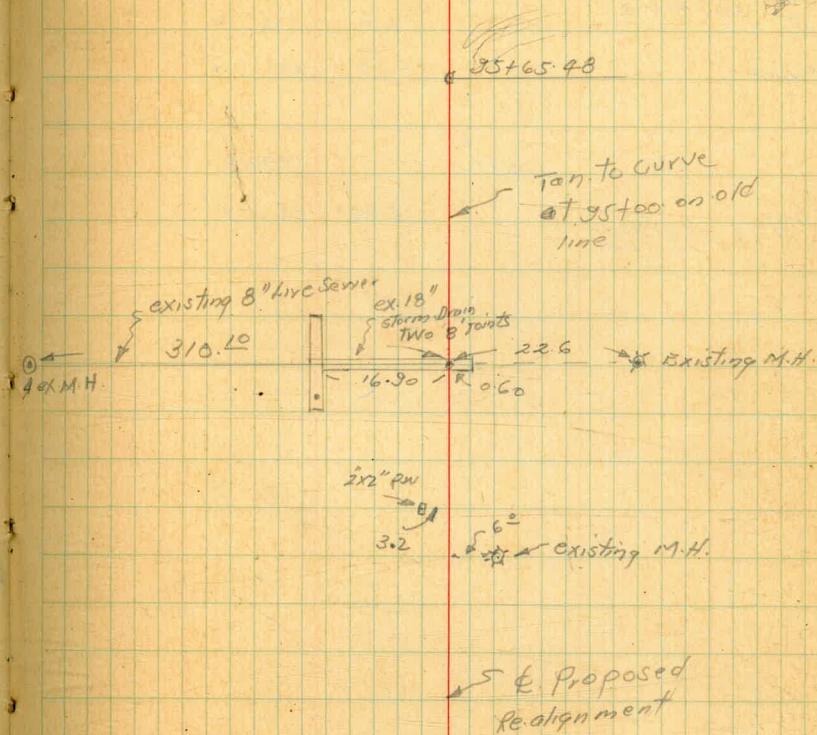 95+65.48
Tan. to Curve
at 95+00 on old
line
existing 8" Live Sewer
ex. 18"
Storm Drain
Two 8' Joints
310.10
22.6
Existing M.H.
ex M.H.
16.90
0.60
2x2" RW
3.2
6º
existing M.H.
℄ Proposed
Re.alignment